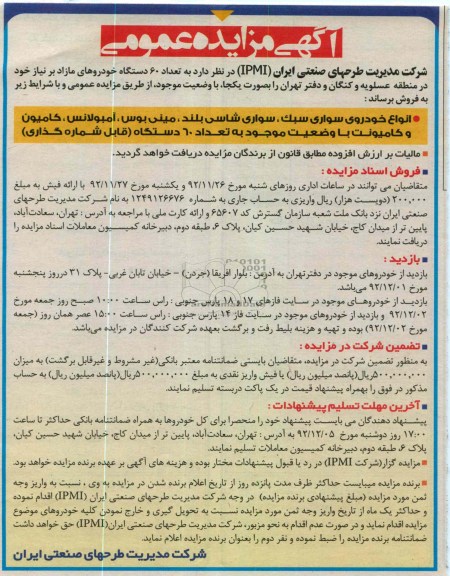 آگهی مزایده عمومی
شرکت مدیریت طرحهای صنعتی ایران (IPMI) در نظر دارد به تعداد ۶۰ دستگاه خودروهای مازاد بر نیاز خود
در منطقه عسلویه و کنگان و دفتر تهران را بصورت یکجا، با وضعیت موجود، از طریق مزایده عمومی و با شرایط زیر
به فروش برساند:
انواع خودروی سواری سبک، سواری شاسی بلند، مینی بوس، آمبولانس، کامیون
و کامیونت با وضعیت موجود به تعداد ۶۰ دستگاه (قابل شماره گذاری)
مالیات بر ارزش افزوده مطابق قانون از برندگان مزایده دریافت خواهد گردید.
فروش اسناد مزایده :
متقاضیان می توانند در ساعات اداری روزهای شنبه مورخ ۹۲/۱۱/۲۶ و یکشنبه مورخ ۹۲/۱۱/۲۷ با ارائه فیش به مبلغ
۲۰۰,۰۰۰ (دویست هزار) ریال واریزی به حساب جاری به شماره ۱۲۴۹۱۲۶۶۷۶ به نام شرکت مدیریت طرحهای
صنعتی ایران نزد بانک ملت شعبه سازمان گسترش کد ۶۵۶۰۷ و ارائه کارت ملی با مراجعه به آدرس : تهران، سعادت‌آباد،
پایین تر از میدان کاج، خیابان شهید حسین کیان، پلاک ۶، طبقه دوم، دبیرخانه کمیسیون معاملات اسناد مزایده را
دریافت نمایند.
بازدید :
بازدید از خودروهای موجود در دفتر تهران به آدرس : بلوار آفریقا (جردن) – خیابان تابان غربی- پلاک ۳۱ در روز پنجشنبه
مورخ ۹۲/۱۲/۰۱ می‌باشد.
بازدید از خودروهای موجود در سایت فازهای ۱۷ و ۱۸ پارس جنوبی : راس ساعت ۱۰:۰۰ صبح روز جمعه مورخ
۹۲/۱۲/۰۲ و بازدید از خودروهای موجود در سایت فاز ۱۴ پارس جنوبی : راس ساعت ۱۵:۰۰ عصر همان روز (جمعه
مورخ ۹۲/۱۲/۰۲) بوده و تهیه و هزینه بلیط رفت و برگشت بعهده شرکت کنندگان در مزایده می‌باشد.
تضمین شرکت در مزایده :
به منظور تضمین شرکت در مزایده، متقاضیان بایستی ضمانتنامه معتبر بانکی(غیر مشروط و غیرقابل برگشت) به میزان
۵۰۰,۰۰۰,۰۰۰ریال(پانصد میلیون ریال) یا فیش واریز نقدی به مبلغ ۵۰۰,۰۰۰,۰۰۰ریال(پانصد میلیون ریال) به حساب
مذکور در فوق را بهمراه پیشنهاد قیمت در یک پاکت دربسته تسلیم نمایند.
آخرین مهلت تسلیم پیشنهادات :
پیشنهاد دهندگان می بایست پیشنهاد خود را منحصرا برای کل خودروها به همراه ضمانتنامه بانکی حداکثر تا ساعت
۱۷:۰۰ روز دوشنبه مورخ ۹۲/۱۲/۰۵ به آدرس : تهران، سعادت‌آباد، پایین تر از میدان کاج، خیابان شهید حسین کیان،
پلاک ۶، طبقه دوم، دبیرخانه کمیسیون معاملات تسلیم نمایند.
مزایده گزار(شرکت IPMI) در رد یا قبول پیشنهادات مختار بوده و هزینه های آگهی بر عهده برنده مزایده خواهد بود.
برنده مزایده میبایست حداکثر ظرف مدت پانزده روز از تاریخ اعلام برنده شدن در مزایده به وی ، نسبت به واریز وجه
ثمن مورد مزایده (مبلغ پیشنهادی برنده مزایده) در وجه شرکت مدیریت طرحهای صنعتی ایران (IPMI) اقدام نموده
و حداکثر یک ماه از تاریخ واریز وجه ثمن مورد مزایده نسبت به تحویل گیری و خارج نمودن کلیه خودروهای موضوع
مزایده اقدام نماید و در صورت عدم اقدام به نحو مزبور، شرکت مدیریت طرحهای صنعتی ایران(IPMI) حق خواهد داشت
ضمانتنامه برنده مزایده را ضبط نموده و نفر دوم را بعنوان برنده مزایده اعلام نماید.
شرکت مدیریت طرحهای صنعتی ایران